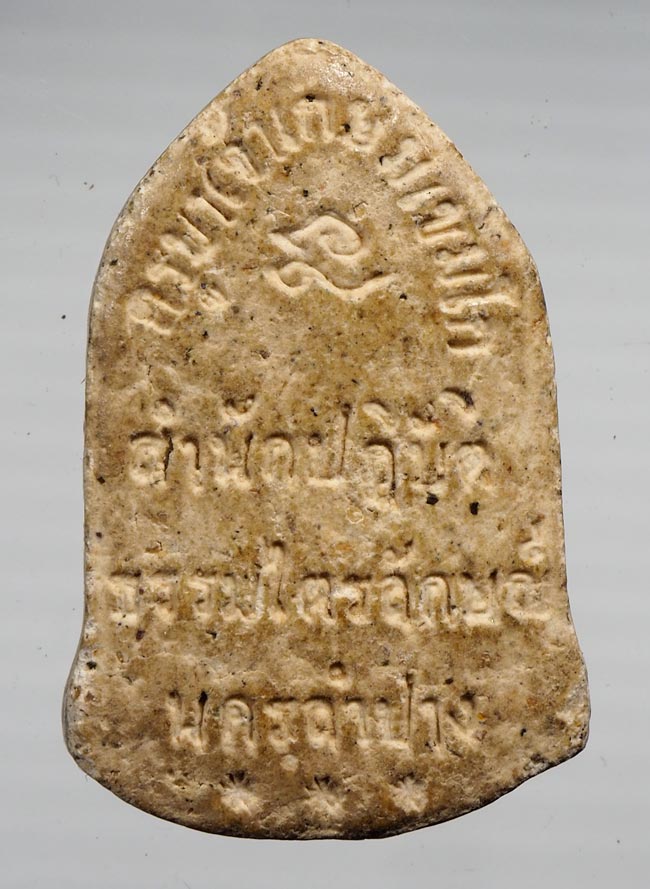 ครูบาเจ้าเกษมเขมโก
สำนักปฏิบัติ
ธรรมไตรลักษณ์
นครลำปาง